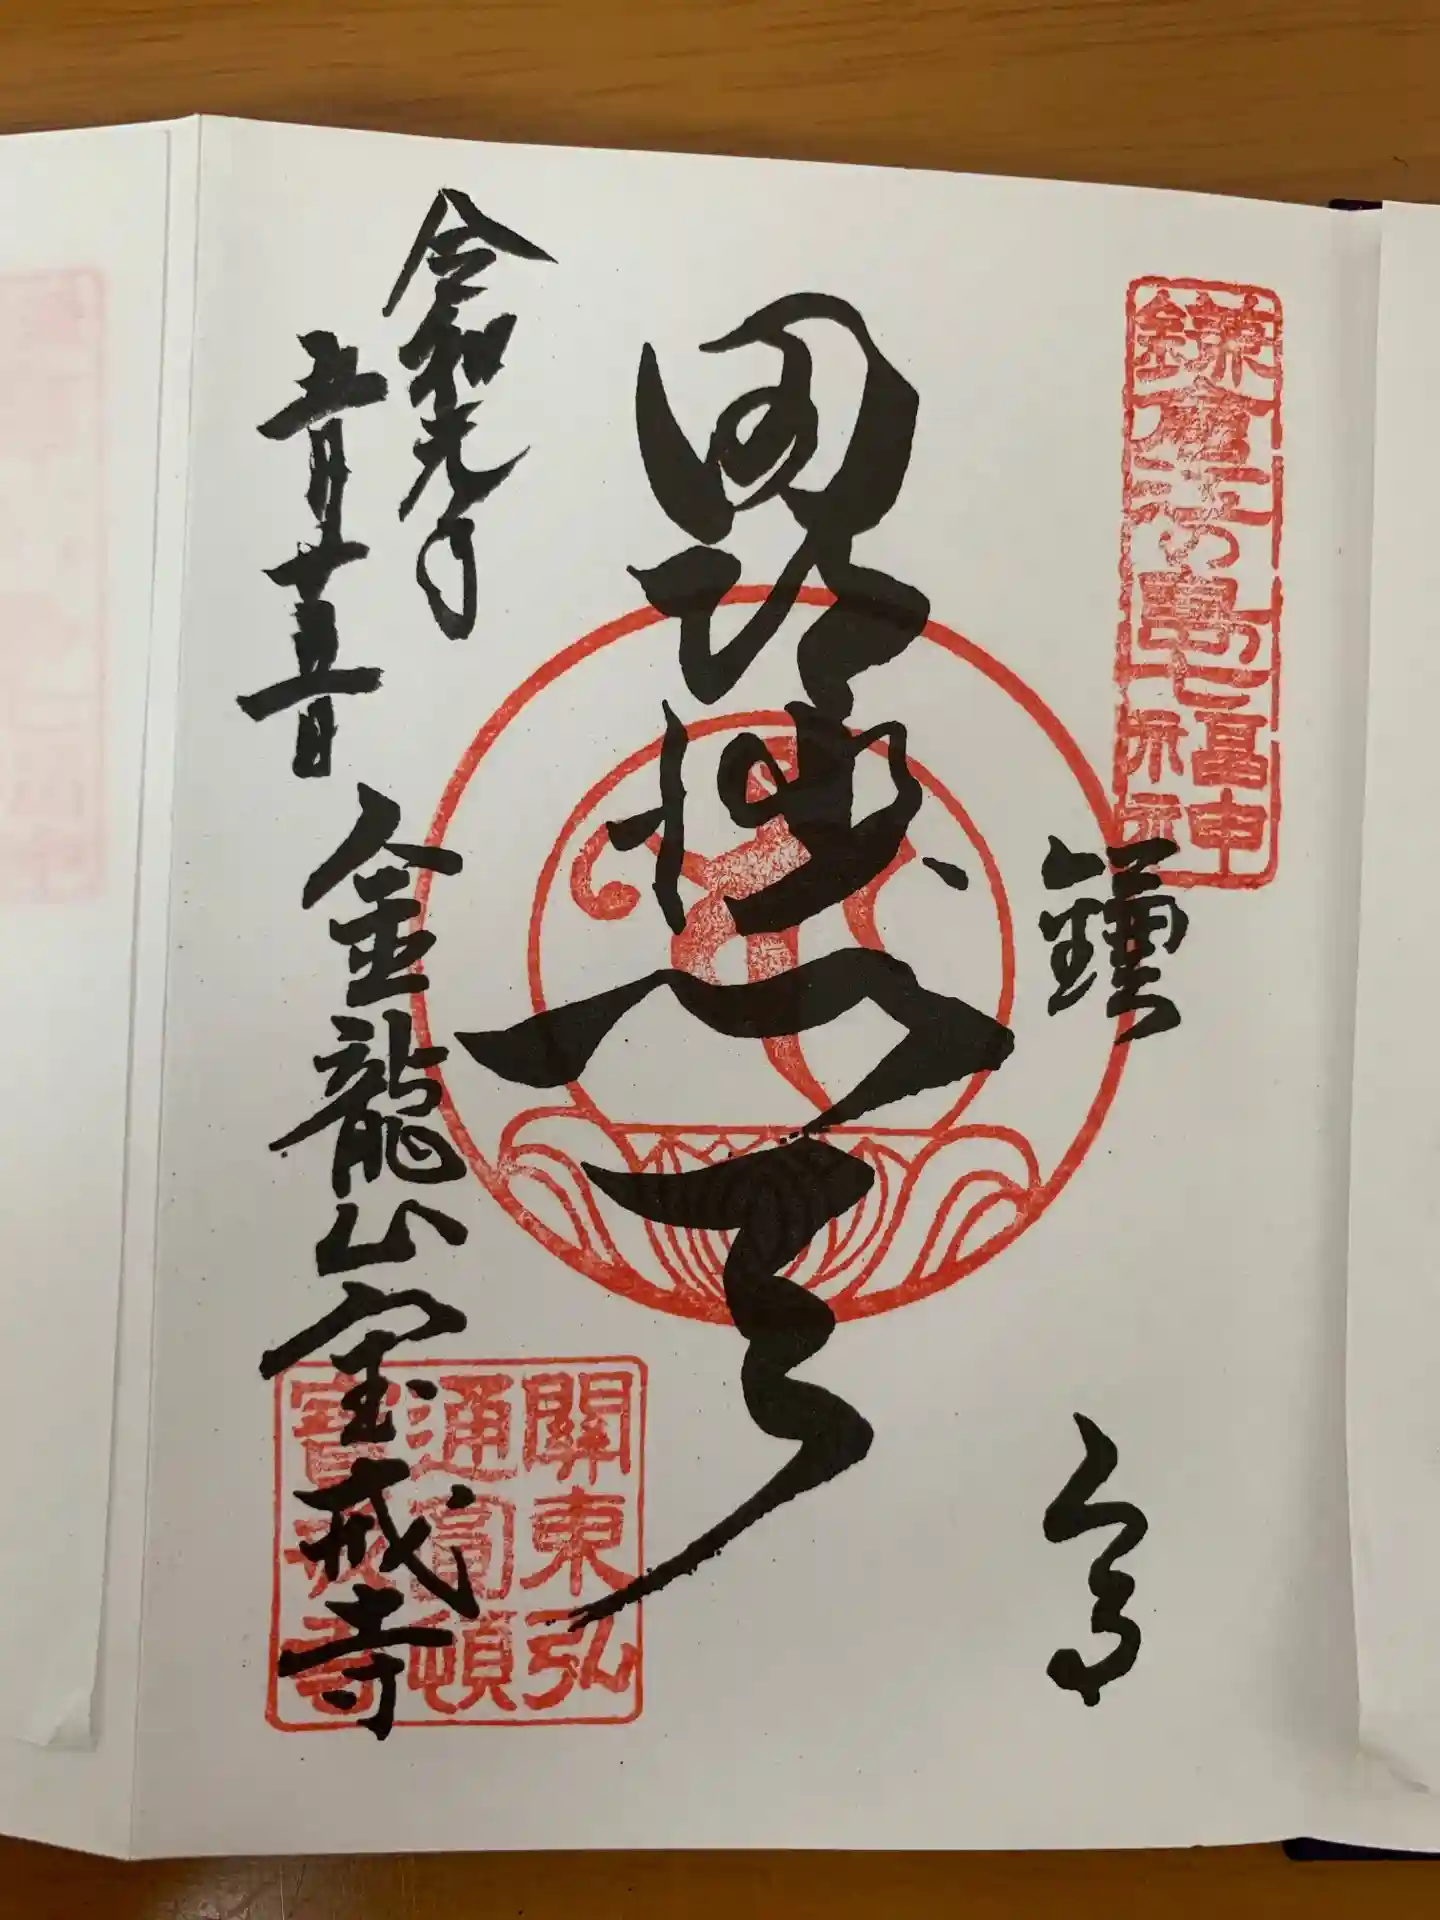 鎌倉江の島七福神
鎌倉
毘沙門天
令和元年
五月十五日
金龍山宝戒寺
關東弘
通圓頓
寶戒寺